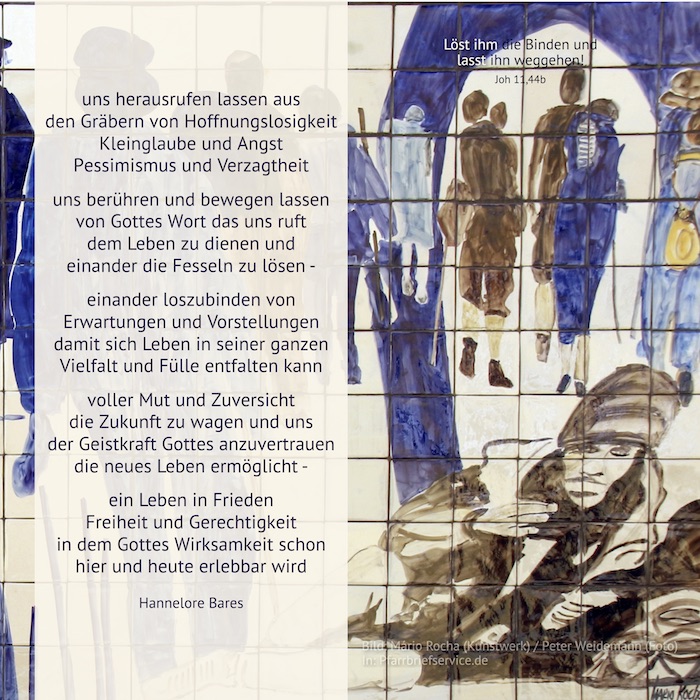 Löst ihm die Binden und
lasst ihn weggehen!
Joh 11,44b
uns herausrufen lassen aus
den Gräbern von Hoffnungslosigkeit
Kleinglaube und Angst
Pessimismus und Verzagtheit
uns berühren und bewegen lassen
von Gottes Wort das uns ruft
dem Leben zu dienen und
einander die Fesseln zu lösen -
einander loszubinden von
Erwartungen und Vorstellungen
damit sich Leben in seiner ganzen
Vielfalt und Fülle entfalten kann
voller Mut und Zuversicht
die Zukunft zu wagen und uns
der Geistkraft Gottes anzuvertrauen
die neues Leben ermöglicht -
ein Leben in Frieden
Freiheit und Gerechtigkeit
in dem Gottes Wirksamkeit schon
hier und heute erlebbar wird
Hannelore Bares
Bild: Mário Rocha (Kunstwerk) / Peter Weidemann (Foto)
In: Pfarrbriefservice.de